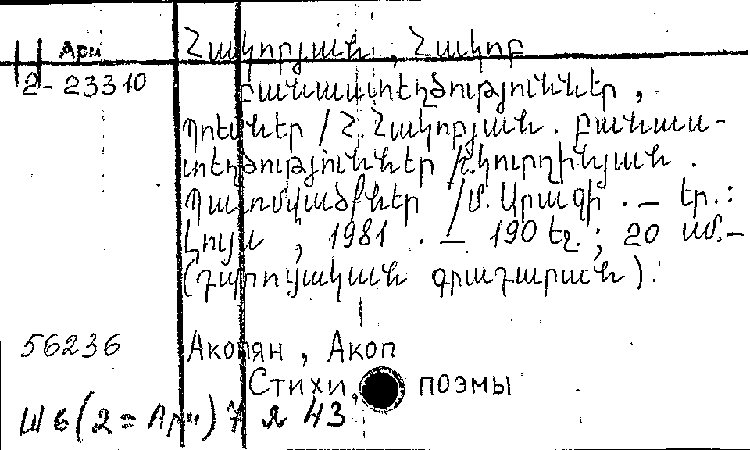 Арм Հակոբյան, Հակոբ
2-23310 Բանաստեղծություններ,
Պոեմներ / Հ. Հակոբյան. Բանաս-
տեղծություններ / Կուրղինյան.
Պատմվածքներ / Մ. Արազի. – եր.:
Լույս, 1981. – 190 էջ; 20 սմ.–
(դպրոցական գրադարան).
56236 Акопян, Акоп
Стихи, поэмы
Ш6(2=Арм)7 я 43